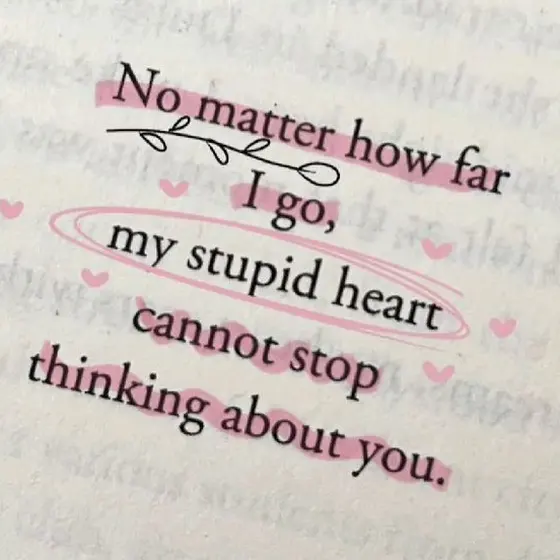 No matter how far
I go,
my stupid heart
cannot stop
thinking about you.